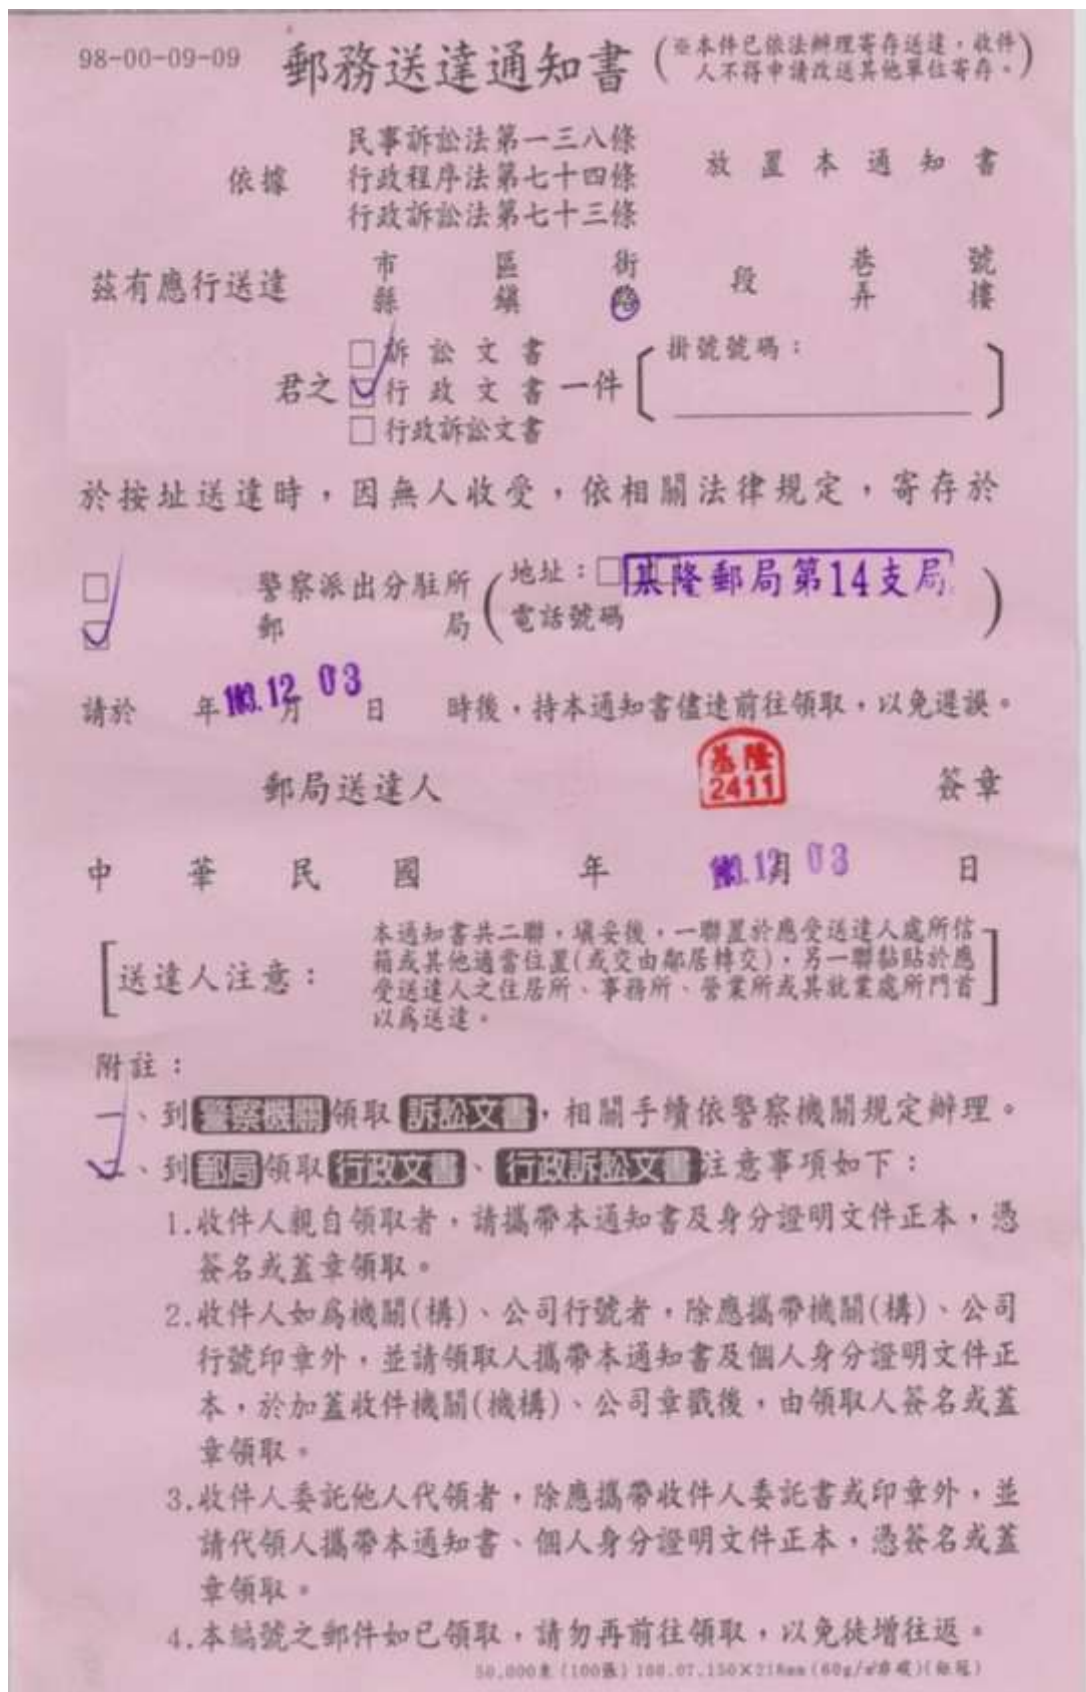 98-00-09-09 郵務送達通知書(※本件已依法辦理寄存送達,收件
人不得申請改送其他單位寄存。)
民事訴訟法第一三八條
依據 行政程序法第七十四條 放置本通知書
行政訴訟法第七十三條
茲有應行送達 市 區 街 段 巷 號
縣 鎮 路 弄 樓
□訴訟文書
君之□行政文書一件〔掛號號碼: 〕
□行政訴訟文書
於按址送達時,因無人收受,依相關法律規定,寄存於
□ 警察派出分駐所(地址:□基隆郵局第14支局)
□ 郵局 電話號碼
請於 年103.12月03日 時後,持本通知書儘速前往領取,以免遲誤。
基隆
2411
郵局送達人 簽章
中華民國 年103.12月03日
[送達人注意:本通知書共二聯,填妥後,一聯置於應受送達人處所信
箱或其他適當位置(或交由鄰居轉交),另一聯黏貼於應
受送達人之住居所、事務所、營業所或其就業處所門首
以為送達。]
附註:
一、到警察機關領取訴訟文書,相關手續依警察機關規定辦理。
二、到郵局領取行政文書、行政訴訟文書注意事項如下:
1.收件人親自領取者,請攜帶本通知書及身分證明文件正本,憑
簽名或蓋章領取。
2.收件人如為機關(構)、公司行號者,除應攜帶機關(構)、公司
行號印章外,並請領取人攜帶本通知書及個人身分證明文件正
本,於加蓋收件機關(機構)、公司章戳後,由領取人簽名或蓋
章領取。
3.收件人委託他人代領者,除應攜帶收件人委託書或印章外,並
請代領人攜帶本通知書、個人身分證明文件正本,憑簽名或蓋
章領取。
4.本編號之郵件如已領取,請勿再前往領取,以免徒增往返。
50,000束(100張)100.07.150×218mm(60g/㎡